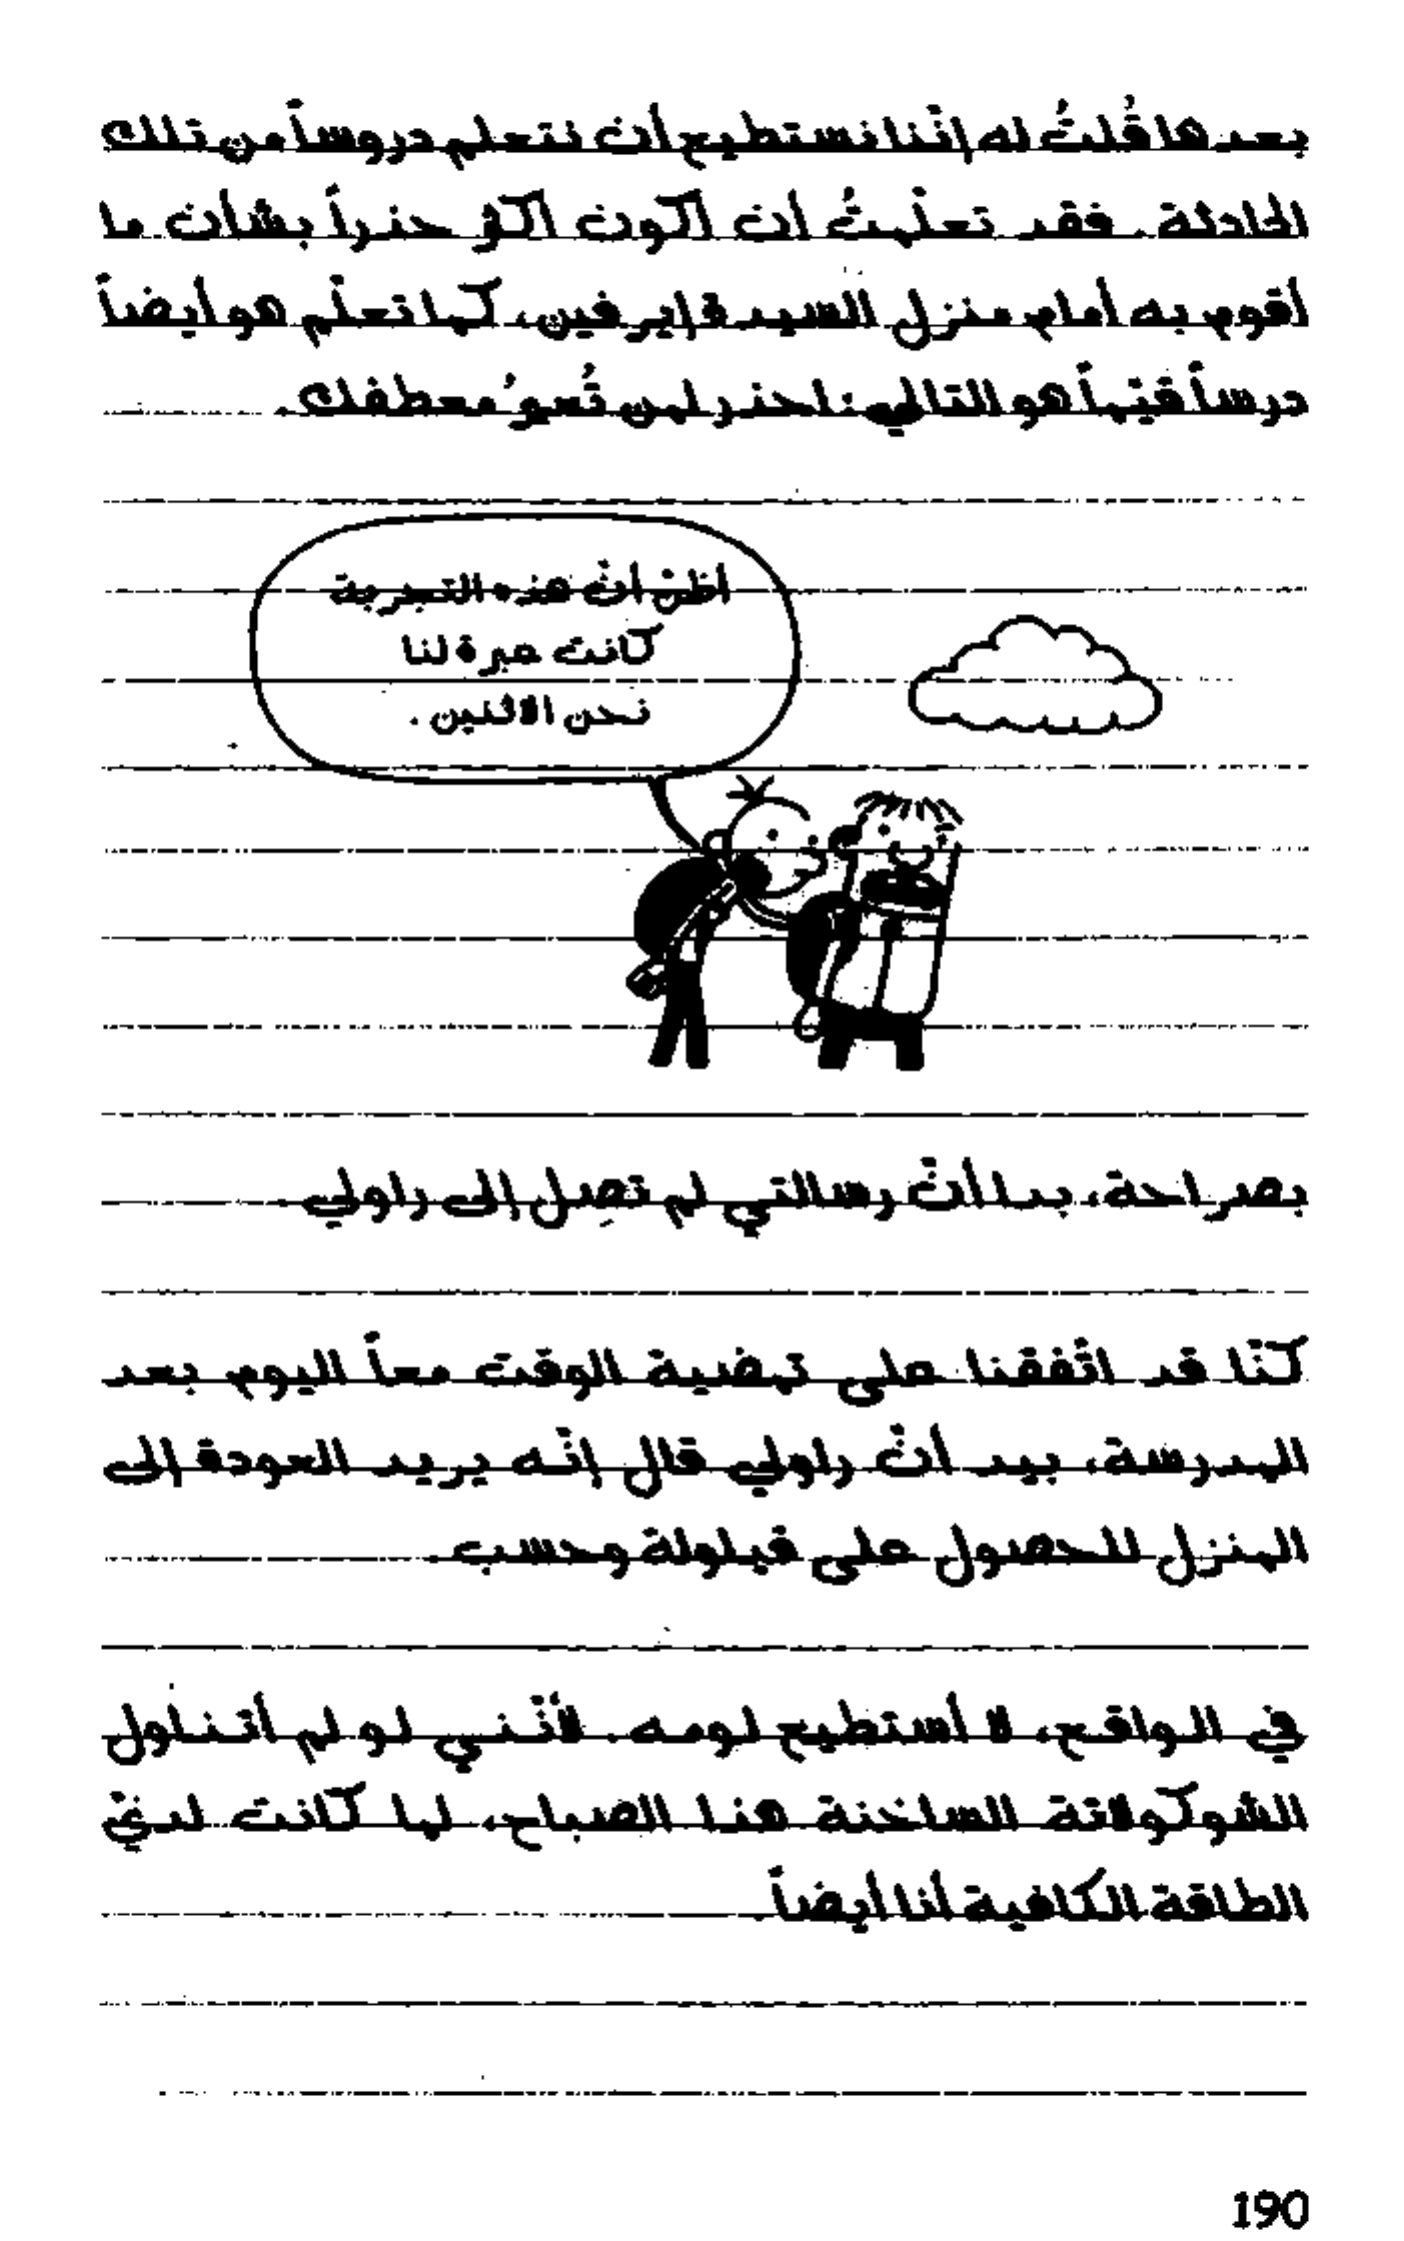 بعدها قُلتُ له إنّنا نستطيع أن نتعلم دروساً من تلك
الحادثة. فقد تعلّمتُ أن أكون أكثر حذراً بشأن ما
أقوم به أمام منزل السيدة إيرفين، كما تعلّم هو أيضاً
درساً قيّماً هو التالي: احذر لمن تُعيرُ معطفك.
أظنّ أنّ هذه التجربة
كانت عبرة لنا
نحن الاثنين.
بصراحة، بدا أنّ رسالتي لم تصِل إلى راولي.
كنّا قد اتّفقنا على تمضية الوقت معاً اليوم بعد
المدرسة، بيد أنّ راولي قال إنّه يريد العودة إلى
المنزل للحصول على قيلولة وحسب.
في الواقع، لا أستطيع لومه. لأنّني لو لم أتناول
الشوكولاتة الساخنة هذا الصباح، لما كانت لديّ
الطاقة الكافية أنا أيضاً.
190